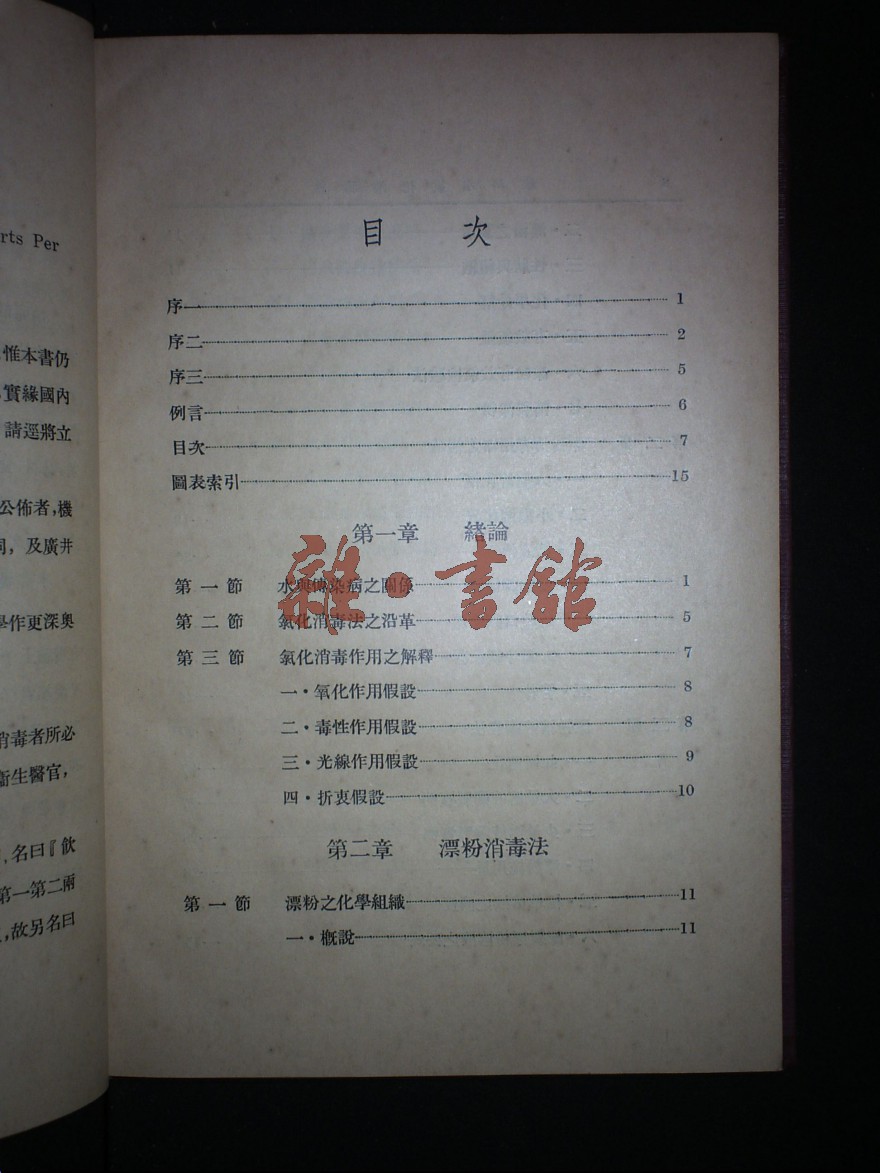 rts Per
惟本書仍
實緣國內
請逕將立
公佈者，機
同，及廣井
學作更深奧
消毒者所必
衞生醫官，
名曰『飲
第一第二兩
，故另名曰
目 次
序一 1
序二 2
序三 5
例言 6
目次 7
圖表索引 15
第一章 緒論
第一節 水與傳染病之關係 1
第二節 氯化消毒法之沿革 5
第三節 氯化消毒作用之解釋 7
一・氧化作用假設 8
二・毒性作用假設 8
三・光線作用假設 9
四・折衷假設 10
第二章 漂粉消毒法
第一節 漂粉之化學組織 11
一・概說 11
雜・書館